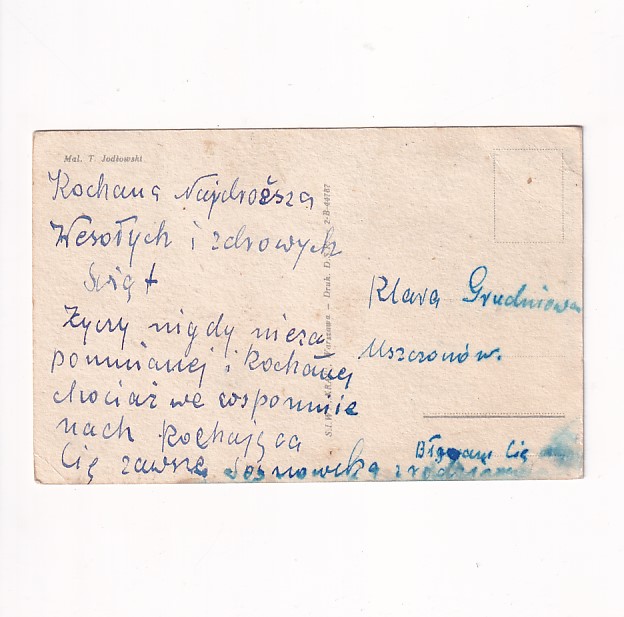 Mal. T. Jodłowski
Kochana Najdroższa
Wesołych i zdrowych
Swiąt
Życzy nigdy nieza
pomnianej i Kochanej
chociaż we wspomnie
niach Kochająca
Cię zawsze Sosnowska z rodziną
Warszawa — Druk. D.S.P. 2-B-44787
Klara Grudniowa
Mszczonów.
Cię